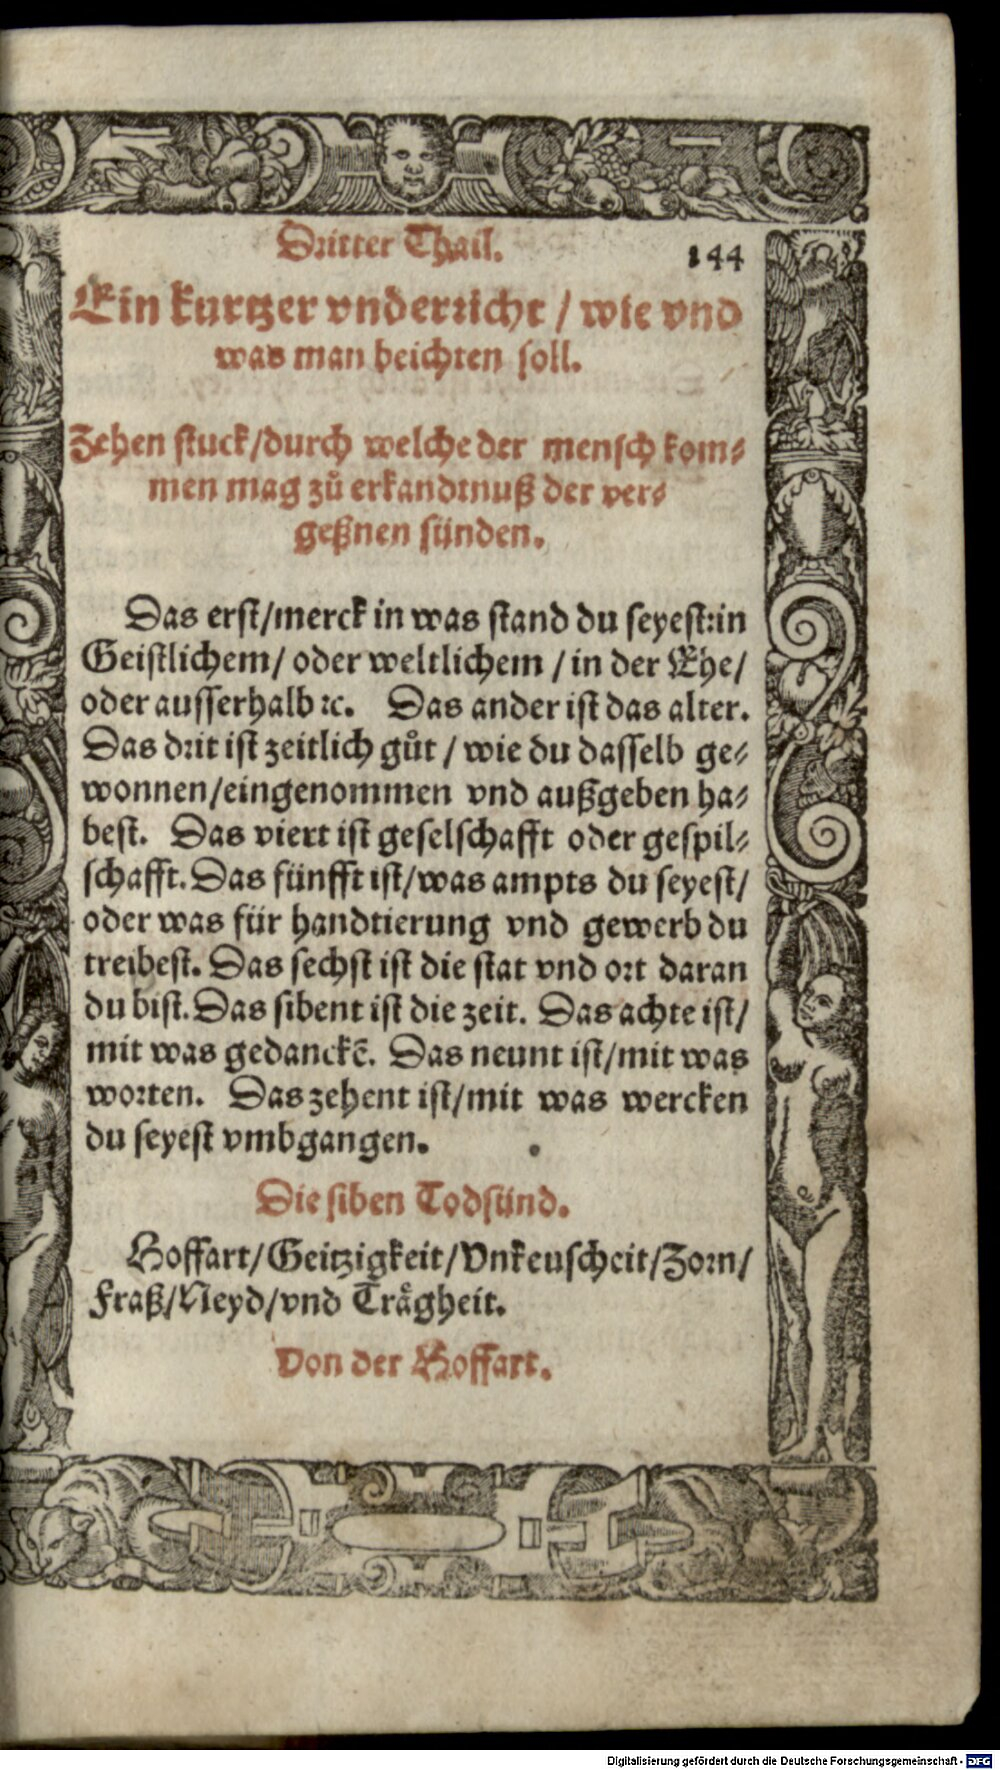 Dritter Thail. 144
Ein kurtzer vnderricht / wie vnd
was man beichten soll.
Zehen stuck/durch welche der mensch kom⸗
men mag zů erkandtnuß der ver⸗
geßnen sünden.
Das erst/merck in was stand du seyest:in
Geistlichem/ oder weltlichem / in der Ehe/
oder ausserhalb ꝛc. Das ander ist das alter.
Das drit ist zeitlich gůt / wie du dasselb ge⸗
wonnen/eingenommen vnd außgeben ha⸗
best. Das viert ist geselschafft oder gespil⸗
schafft. Das fünfft ist/was ampts du seyest/
oder was für handtierung vnd gewerb du
treibest. Das sechst ist die stat vnd ort daran
du bist. Das sibent ist die zeit. Das achte ist/
mit was gedanckē. Das neunt ist/mit was
worten. Das zehent ist/mit was wercken
du seyest vmbgangen.
Die siben Todsünd.
Hoffart/Geitzigkeit/Vnkeuscheit/Zorn/
Fraß/Neyd/vnd Trågheit.
Von der Hoffart.
Digitalisierung gefördert durch die Deutsche Forschungsgemeinschaft - DFG